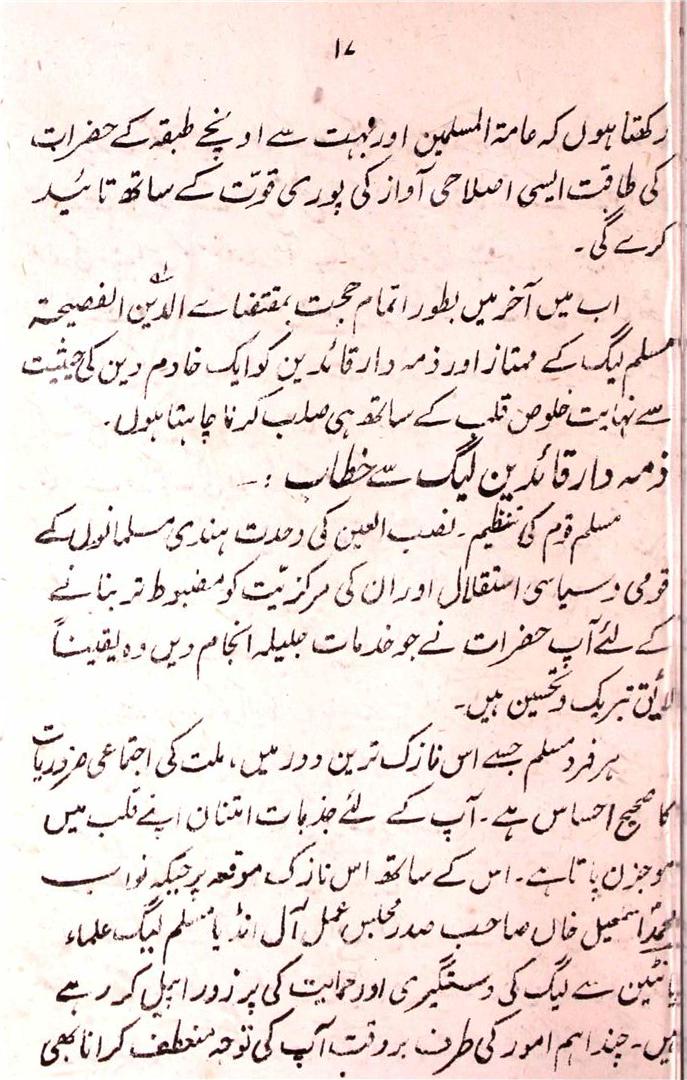 ۱۷
رکھتا ہوں کہ عامۃ المسلمین اور بہت سے اونچے طبقہ کے حضرات
کی طاقت ایسی اصلاحی آواز کی پوری قوّت کے ساتھ تائید
کرے گی ۔
اب میں آخر میں بطور اتمام حجت بمقتضاے الدین النصیحۃ
مسلم لیگ کے ممتاز اور ذمہ دار قائدین کو ایک خادم دین کی حیثیت
سے نہایت خلوص قلب کے ساتھ ہی کرنا چاہتا ہوں۔
ذمہ دار قائدین لیگ سے خطاب :۔
مسلم قوم کی تنظیم۔ نصب العین کی وحدت ہندی مسلمانوں کے
قومی و سیاسی استقلال اور ان کی مرکزیّت کو مضبوط تر بنانے
کے لئے آپ حضرات نے جو خدمات جلیلہ انجام دیں وہ یقیناً
لائق تبریک و تحسین ہیں۔
ہر فرد مسلم جسے اس نازک ترین دور میں، ملت کی اجتماعی ضروریات
کا صحیح احساس ہے۔ آپ کے لئے جذبات امتنان اپنے قلب میں
موجزن پاتا ہے۔ اس کے ساتھ اس نازک موقعہ پر جبکہ نواب
محمد اسمعیل خاں صاحب صدر مجلس عمل آل انڈیا مسلم لیگ علماء
سے لیگ کی دستگیری اور حمایت کی پر زور اپیل کر رہے
ہیں۔ چند اہم امور کی طرف بر وقت آپ کی توجہ منعطف کرانا بھی